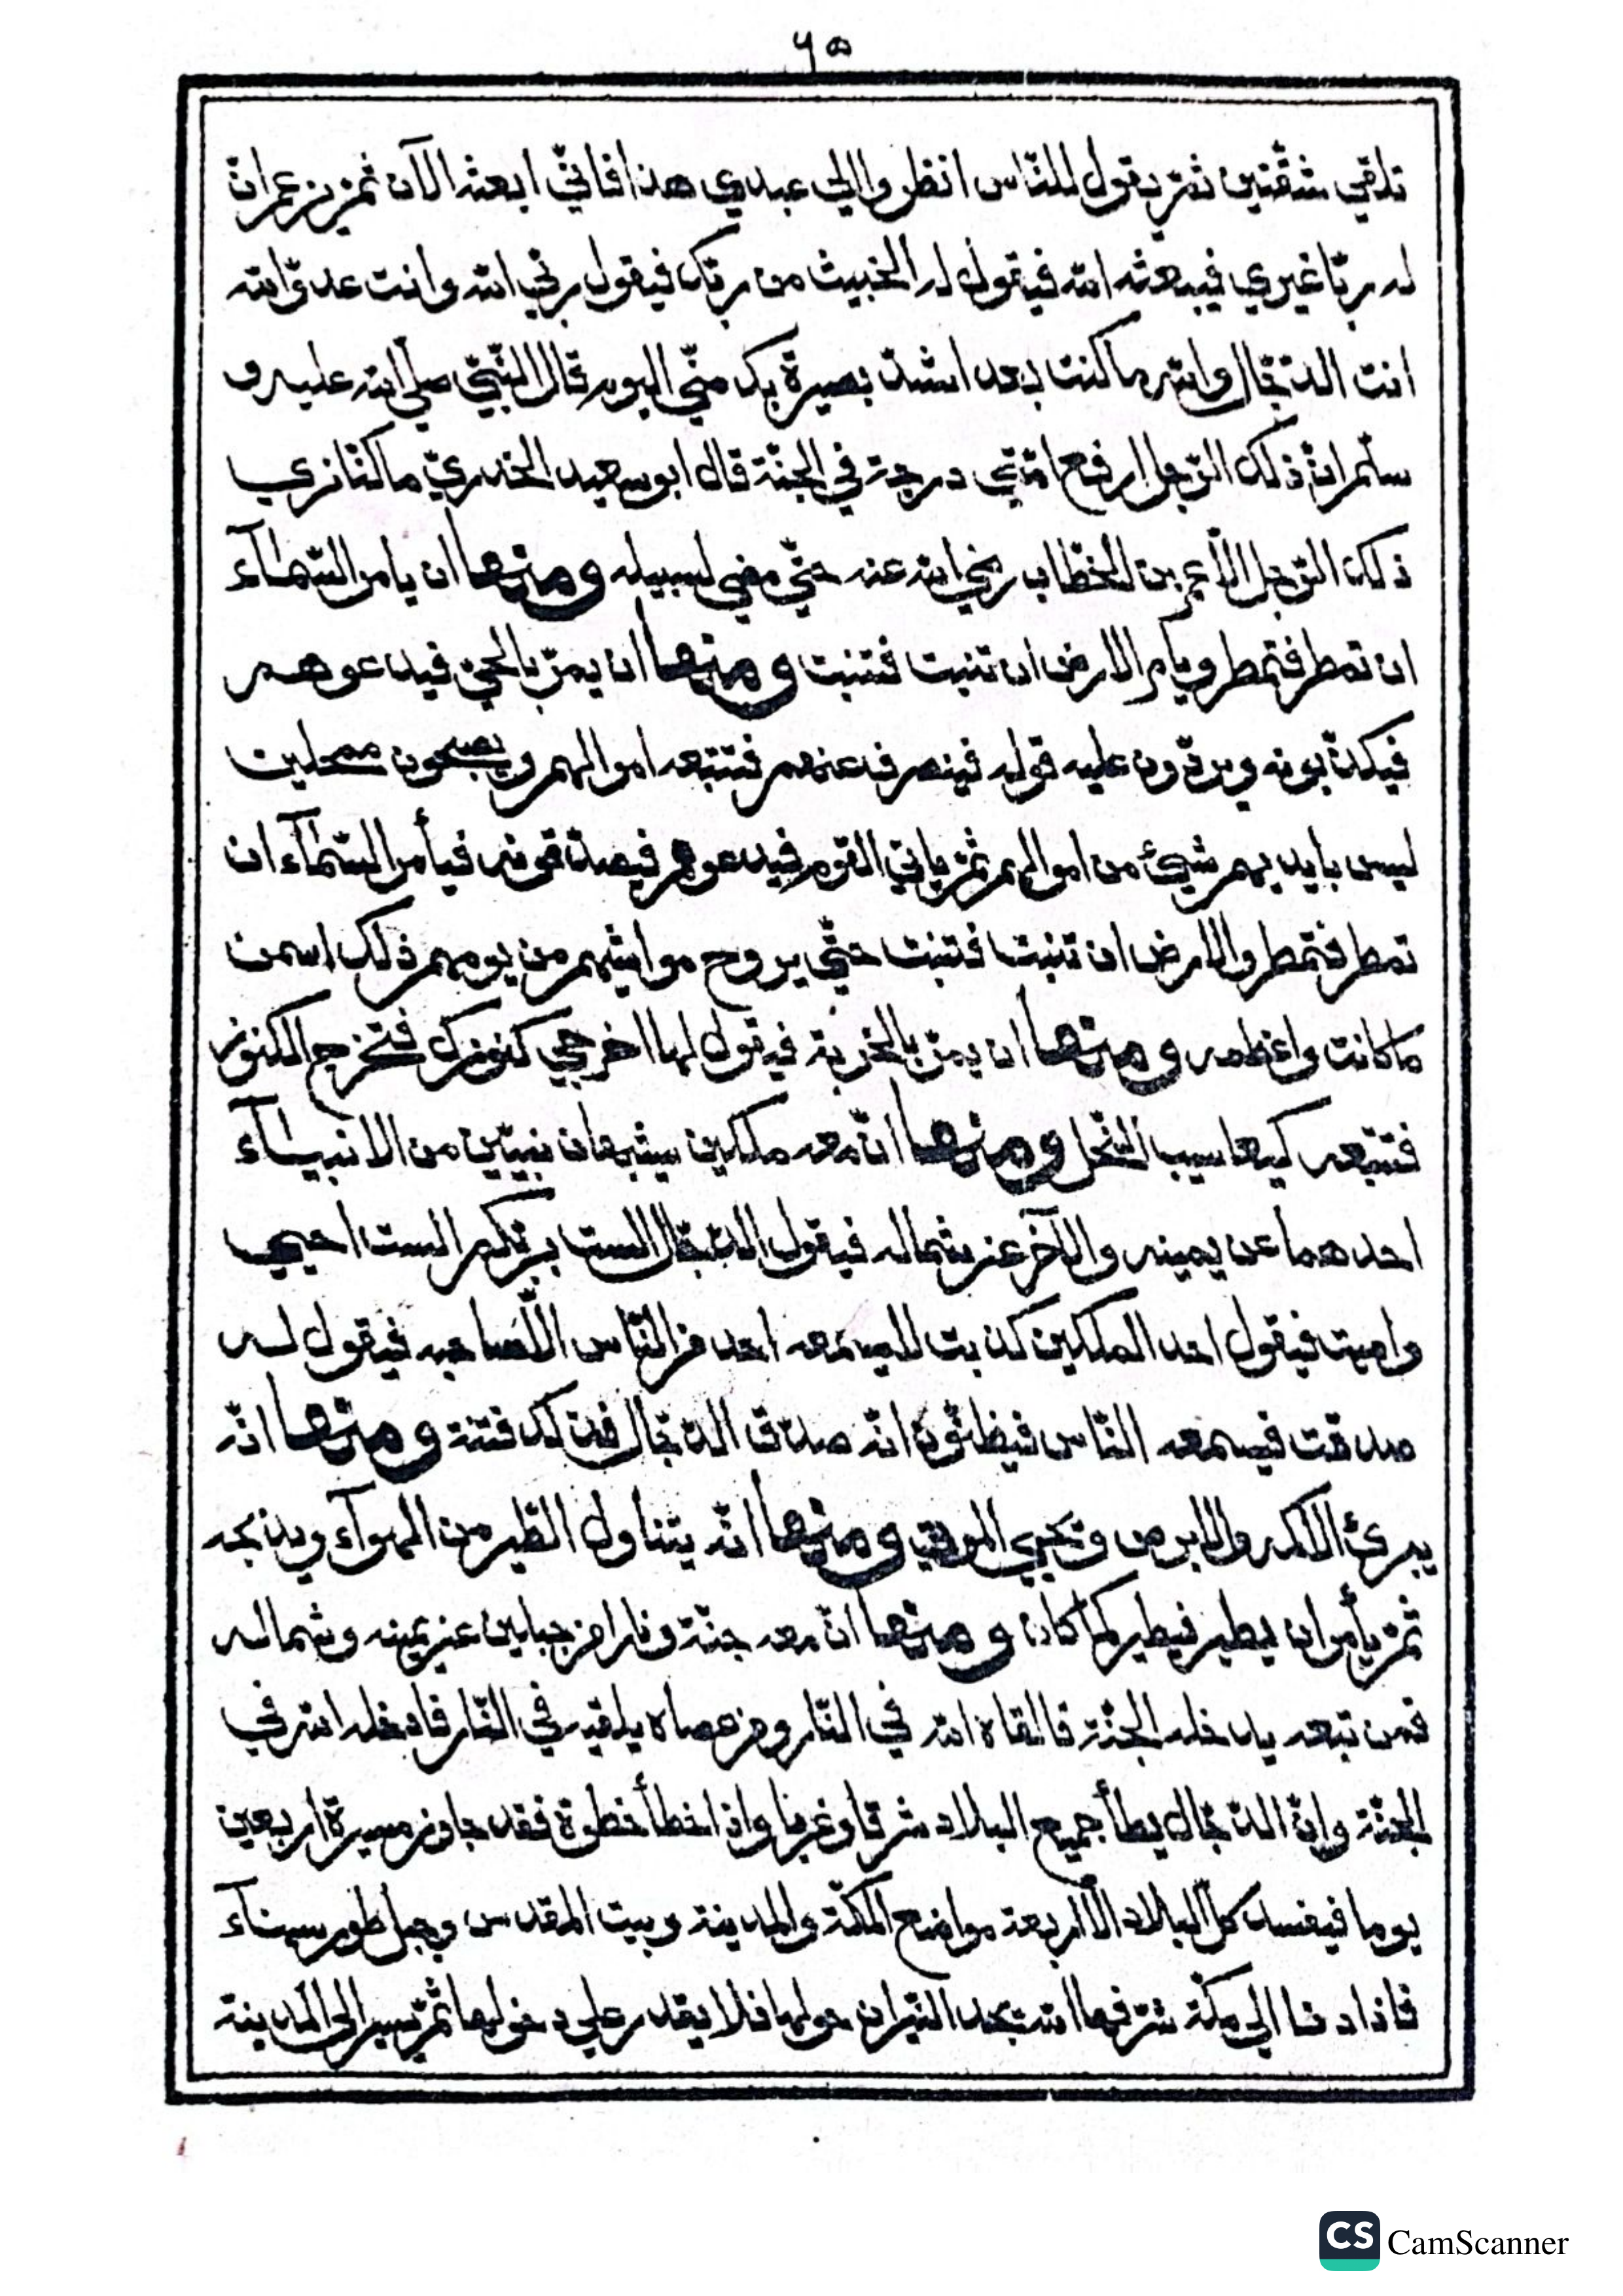 ٦٥
تلقي شقتين ثمّ يقول للنّاس انظروا الي عبدي هذا فانّي ابعثه الآن ثمّ يزعم انّ
له ربّا غيري فيبعثه الله فيقول له الخبيث من ربّك فيقول ربّي الله وانت عدوّ الله
انت الدّجّال والله ما كنت بعد اشدّ بصيرة بك منّي اليوم قال النّبيّ صلّي الله عليه و
سلّم انّ ذلك الرّجل ارفع امّتي درجة في الجنّة قال ابو سعيد الخدريّ ما كنّا نري
ذلك الرّجل الّا عمر بن الخطّاب رضي الله عنه حتّي مضي لسبيله ومنها ان يامر السّمآء
ان تمطر فتمطر ويامر الارض ان تنبت فتنبت ومنها ان يمرّ بالحيّ فيدعوهم
فيكذّبونه ويردّون عليه قوله فينصرف عنهم فتتبعه اموالهم ويصبحون ممحلين
ليس بايديهم شيئ من اموالهم ثمّ ياتي القوم فيدعوهم فيصدّقونه فيأمر السّمآء ان
تمطر فتمطر والارض ان تنبت فتنبت حتّي يروح مواشيهم من يومهم ذلك اسمن
ما كانت واعظمه ومنها ان يمرّ بالخربة فيقول لها اخرجي كنوزك فتخرج الكنوز
فتتبعه كيعاسيب النّحل ومنها انّ معه ملكين يشبهان نبيّين من الانبيآء
احدهما عن يمينه والآخر عن شماله فيقول الدّجّال الست بربّكم الست احيي
واميت فيقول احد الملكين كذبت لا يسمعه احد من النّاس الّا صاحبه فيقول له
صدقت فيسمعه النّاس فيظنّون انّه صدّق الدّجّال فذلك فتنة ومنها انّه
يبرئ الاكمه والابرص ويحيي الموتي ومنها انّه يتناول الطّير من الهوآء ويذبحه
ثمّ يأمر ان يطير فيطير كما كان ومنها انّ معه جنّة ونارا من جبلين عن يمينه وشماله
فمن تبعه يدخله الجنّة فالقاه الله في النّار ومن عصاه يلقيه في النّار فادخله الله في
الجنّة وانّ الدّجّال يطأ جميع البلاد شرقا وغربا واذا خطأ خطوة فقد جاوز مسيرة اربعين
يوما فيفسد كلّ البلاد الّا اربعة مواضع المكّة والمدينة وبيت المقدس وجبل طور سينآء
فاذا دنا الي مكّة شرّفها الله يجد النّيران حولها فلا يقدر علي دخولها ثمّ يسير الي المدينة
CS CamScanner